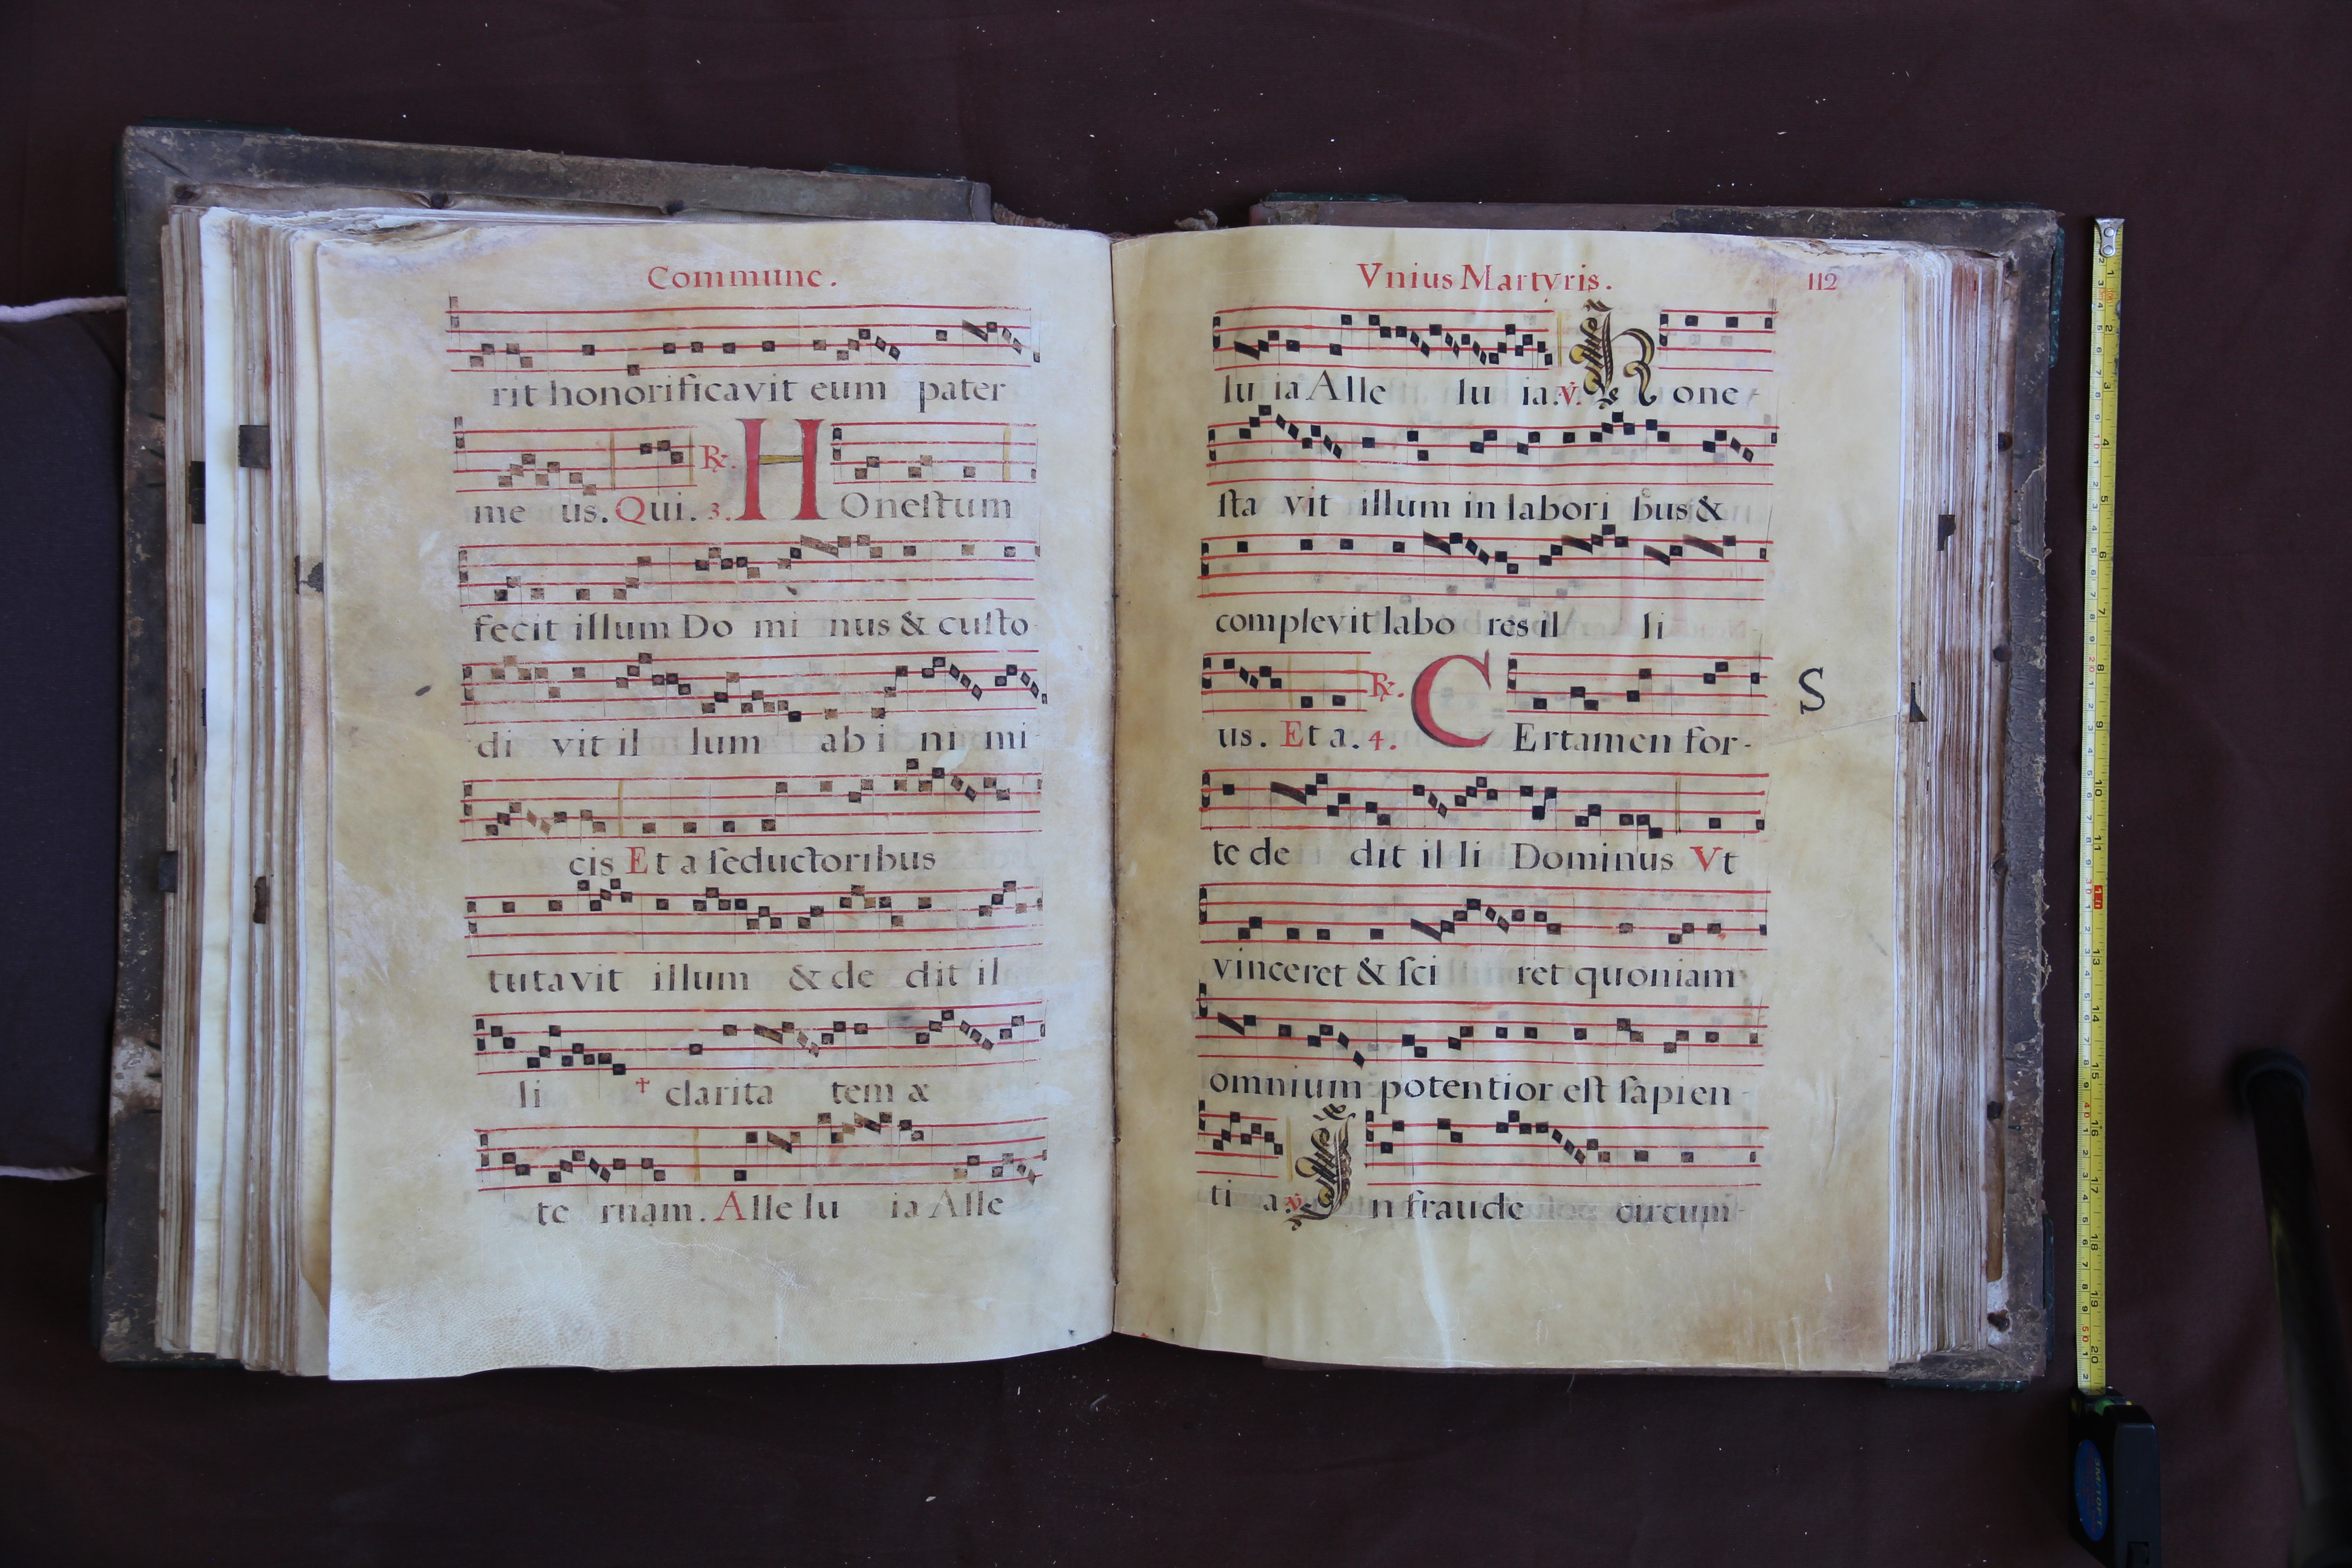 Commune.
rit honorificavit eum pater
me us. Qui. 3. ℟. HOnestum
fecit illum Do mi nus & custo
di vit il lum ab i ni mi
cis Et a seductoribus
tutavit illum & de dit il
li † clarita tem &
te rnam. Alle lu ia Alle
Vnius Martyris. 112
lu ia Alle lu ia. ℣. Hone
sta vit illum in labori bus &
complevit labo res il li
us. Et a. 4. ℟. CErtamen for-
S
te de dit il li Dominus Vt
vinceret & sci ret quoniam
omnium potentior est sapien
ti a. ℣. In fraude circum-